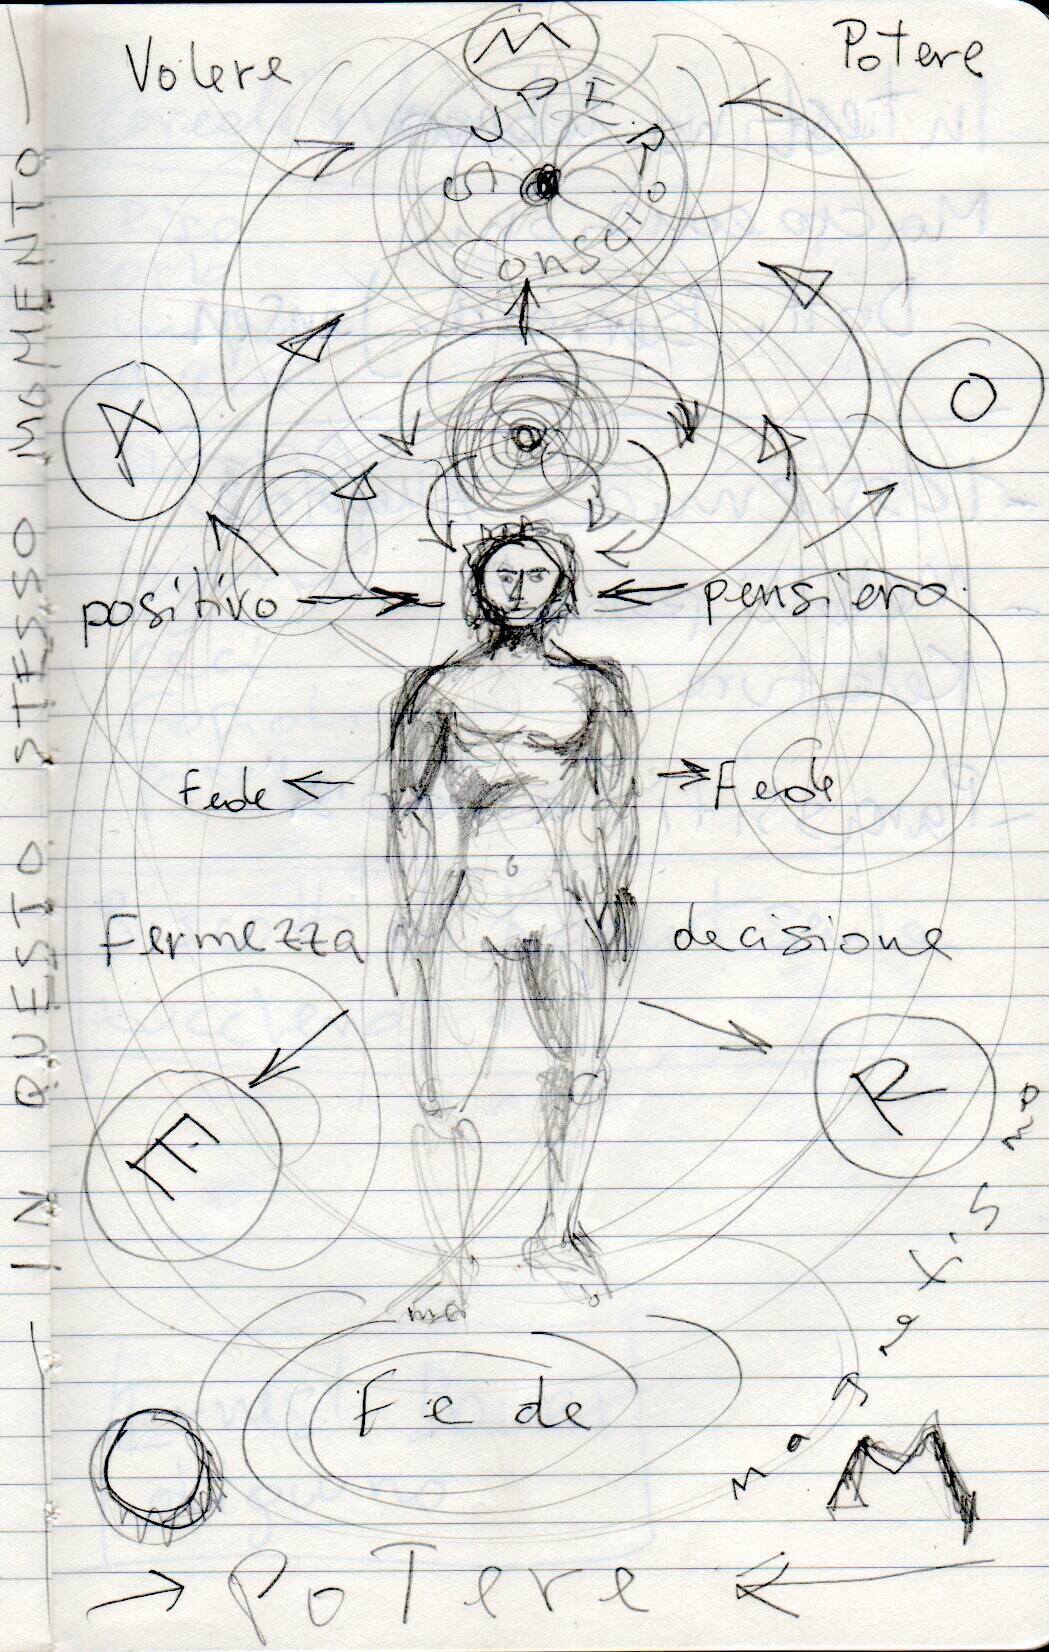 Volere
M
Potere
SUPER
Conscio
A
O
positivo
pensiero
Fede
Fede
Fermezza
decisione
E
R
Fede
magnetismo
M
Potere
IN QUESTO STESSO MOMENTO